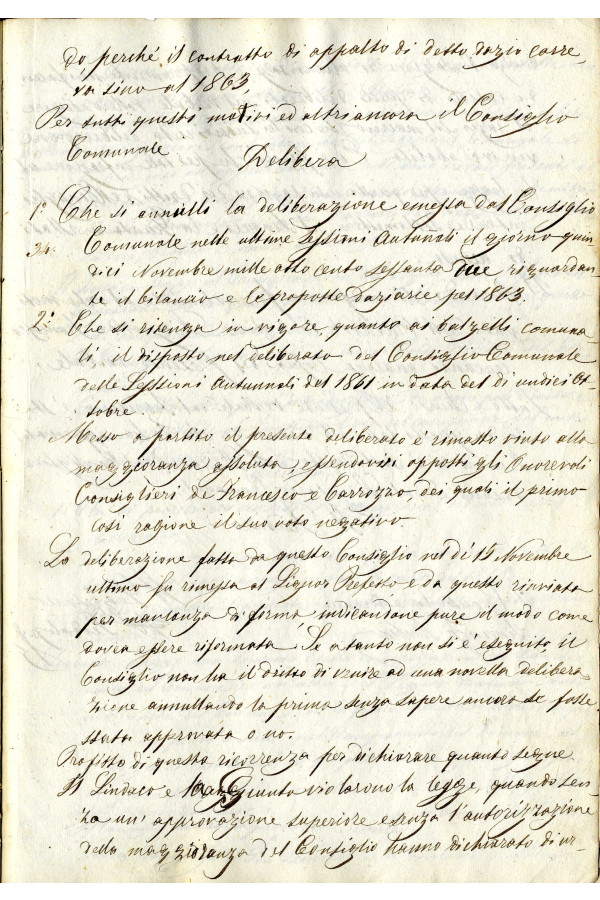 do perché il contratto di appalto di detto dazio corre,
va sino al 1863,
Per tutti questi motivi ed altri ancora il Consiglio
Comunale Delibera
1° Che si annulli la deliberazione emessa dal Consiglio
34. Comunale nelle ultime Sessioni Autunnali il giorno quin
dici Novembre mille otto cento sessanta due riguardan-
te il bilancio e le proposte daziarie pel 1863.
2° Che si ritenga in vigore, quanto ai balzelli comuna-
li, il disposto nel deliberato del Consiglio Comunale
delle Sessioni Autunnali del 1861 in data del di undici Ot-
tobre.
Messo a partito il presente deliberato è rimasto vinto alla
maggioranza assoluta, essendovisi opposti gli Onorevoli
Consiglieri de Francesco e Carrozzo, dei quali il primo
così ragione il suo voto negativo.-
La deliberazione fatta da questo Consiglio nel dì 15 Novembre
ultimo fu rimessa al Signor Prefetto e da questo rinviata
per mancanza di forma, indicandone pure il modo come
dovea essere riformata. Se a tanto non si è eseguito il
Consiglio non ha il dritto di venire ad una novella delibera-
zione annullando la prima senza sapere ancora se fosse
stata approvata o no.
Profitto di questa ricorrenza per dichiarare quanto segue
Il Sindaco e la Giunta violarono la legge, quando sen-
za un' approvazione superiore e senza l'autorizzazione
della maggioranza del Consiglio hanno dichiarato di ur-